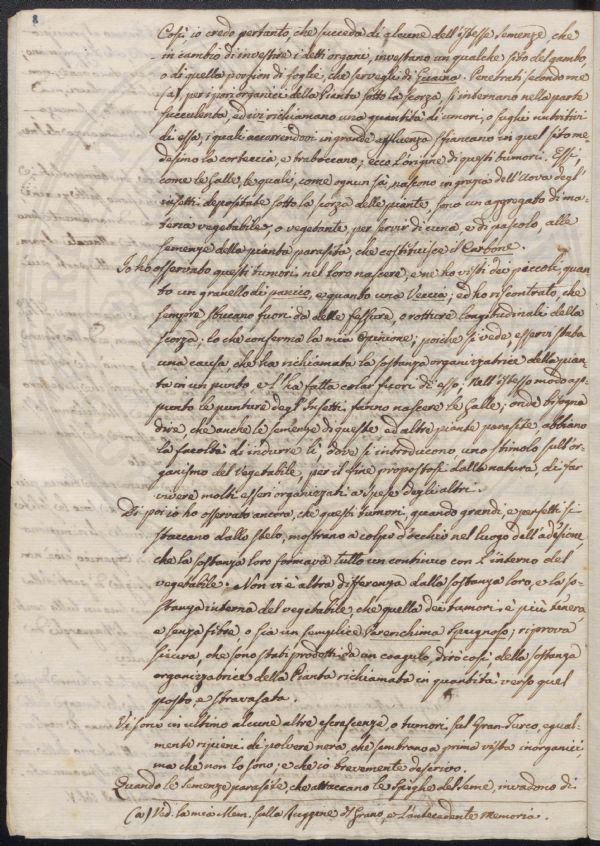 8
Così io credo pertanto, che succeda di alcune dell'istesse Semenze, che
in cambio di investire i detti organi, investano un qualche sito del gambo,
o di quella porzion di foglie, che serve gli di Guaina. Penetrati secondo me
(a), per i pori organici della Pianta sotto la scorza si internano nella parte
succulenta, ed ivi richiamano una quantità di umori, o sughi nutritivi
di essa, i quali accorrendovi in grande affluenza sfiancano in quel sito me-
desimo la corteccia, e traboccano; ecco l'origine di questi tumori. Essi,
come le Galle, le quali, come ognun sà, nascono in grazia dell'Uova degl'
insetti depositate sotto la scorza delle piante, sono un aggregato di ma-
teria vegetabile, o vegetante, per servir di cuna, e di pascolo, alle
semenze della pianta parasita, che costituisce il Carbone.
Io ho osservato questi tumori nel loro nascere, e ne ho visti dei piccoli, quan-
to un granello di panico, e quanto una Veccia; ed ho riscontrato, che
sempre sbucano fuori da delle fessure, o rotture longitudinali della
scorza; lo che conferma la mia Opinione; poiche si vede, esservi stata
una causa, che ha richiamata la sostanza organizzatrice della pian-
ta in un punto, e l'ha fatta colar fuori di esso. Nell'istesso modo ap-
punto le punture degl'Insetti fanno nascere le Galle; onde bisogna
dire, che anche le semenze di queste, ed altre piante parasite, abbiano
la facoltà di indurre lì dove si introducono, uno stimolo sull'or-
ganismo del Vegetabile, per il fine propostosi dalla natura, di far
vivere molti esseri organizzati a spese degli altri.
Di poi io ho osservato ancora, che questi tumori, quando grandi, e perfetti si
staccano dallo stelo, mostrano a colpo d'occhio nel luogo dell'adesione,
che la sostanza loro formava tutto un continuo con l'interno del
vegetabile. Non vi è altra differenza dalla sostanza loro, e la so-
stanza interna del vegetabile, che quella dei tumori è più tenera,
e senza fibre, o sia un semplice Parenchima spugnoso; riprova
sicura, che sono stati prodotti da un coagulo, dirò così della sostanza
organizzatrice della Pianta richiamata in quantità verso quel
posto, e stravasata.
Vi sono in ultimo alcune altre escrescenze, o tumori sul Gran-Turco, egual-
mente ripiene di polvere nera, che sembrano a prima vista inorganici,
ma che non lo sono, e che io brevemente descrivo.
Quando le semenze parasite, che attaccano le spighe del seme, invadono di-
(a) Ved. la mia Mem. sulla Ruggine del Grano, e l'antecedente Memoria.